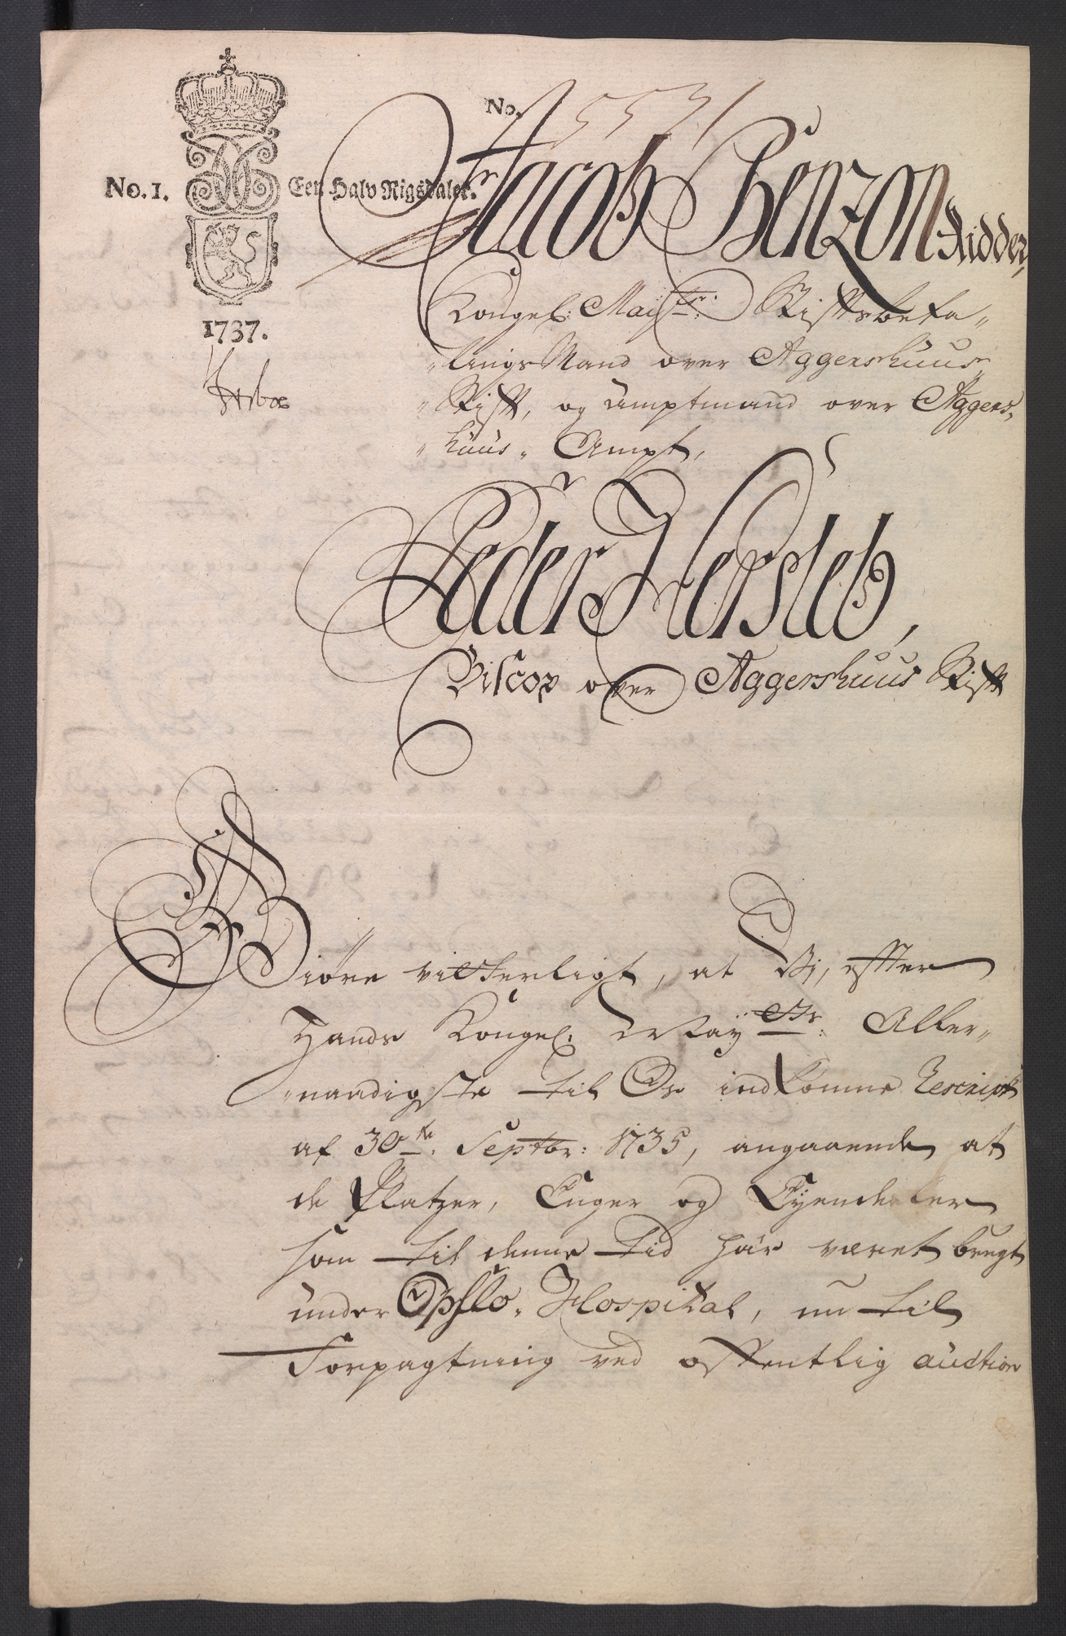 No. 1.
Een Halv Rigsdaler.
1737.
No. 5531
Jacob Benzon Ridder,
Kongel: Mayst: Stiftsbefa„
„lings Mand over Aggershuus„
„Stift, og Amptmand over Aggers„
„huus„ Ampt,
Peder Hersleb,
Biscop over Aggershuus Stift
Giøre vitterligt, at Vj, efter
Hands Kongel: Mayst: Aller„
„naadigste til Os indkomne Rescript
af 30te Septbr: 1735, angaaende at
de Platzer, Enger og Eyendeeler
som til denne tid har været brugt
under Opslo„ Hospital, nu til
Forpagtning ved offentlig auction